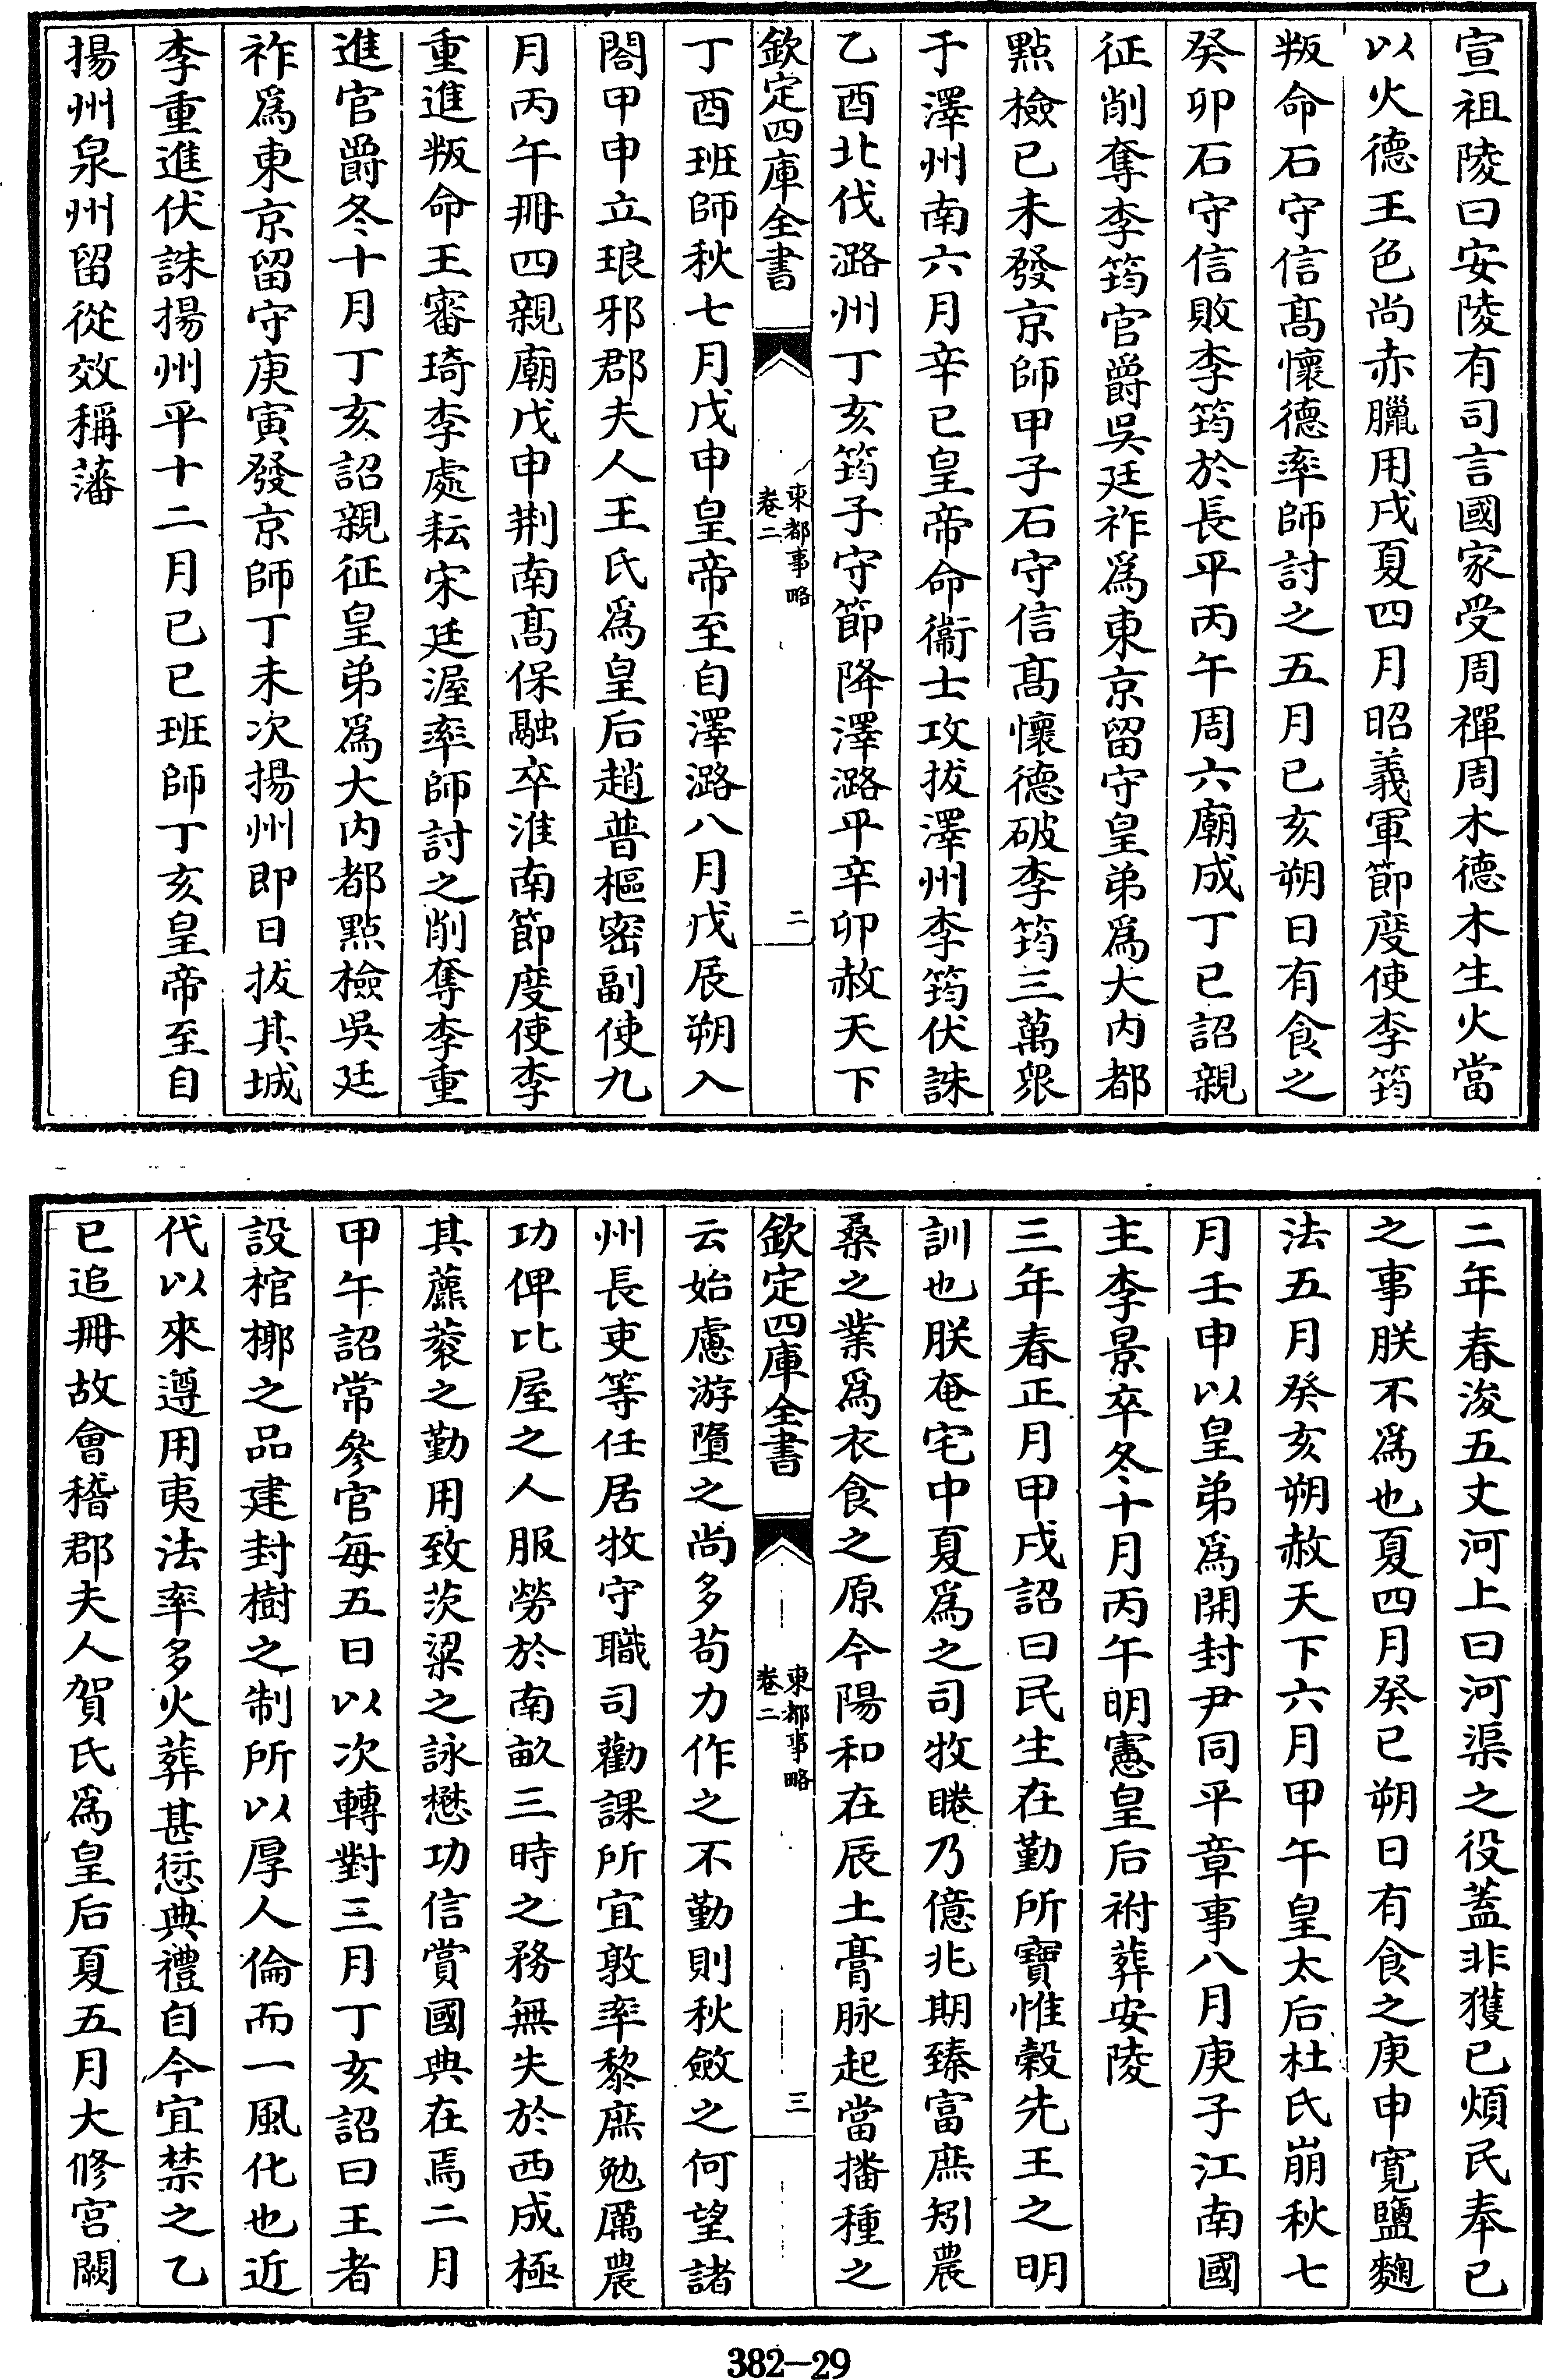 宣祖陵曰安陵有司言國家受周禪周木德木生火當
以火德王色尚赤臘用戌夏四月昭義軍節度使李筠
叛命石守信髙懷德率師討之五月己亥朔日有食之
癸卯石守信敗李筠於長平丙午周六廟成丁巳詔親
征削奪李筠官爵吳廷祚爲東京留守皇弟爲大内都
點檢己未發京師甲子石守信髙懷德破李筠三萬衆
于澤州南六月辛巳皇帝命衞士攻拔澤州李筠伏誅
乙酉北伐潞州丁亥筠子守節降澤潞平辛卯赦天下
欽定四庫全書
東都事略
卷二
二
丁酉班師秋七月戊申皇帝至自澤潞八月戊辰朔入
閤甲申立琅邪郡夫人王氏爲皇后趙普樞密副使九
月丙午冊四親廟戊申荆南髙保融卒淮南節度使李
重進叛命王審琦李處耘宋廷渥率師討之削奪李重
進官爵冬十月丁亥詔親征皇弟爲大内都點檢吳廷
祚爲東京留守庚寅發京師丁未次揚州即日拔其城
李重進伏誅揚州平十二月己巳班師丁亥皇帝至自
揚州泉州留從效稱藩
二年春浚五丈河上曰河渠之役蓋非獲已煩民奉已
之事朕不爲也夏四月癸巳朔日有食之庚申寛鹽麴
法五月癸亥朔赦天下六月甲午皇太后杜氏崩秋七
月壬申以皇弟爲開封尹同平章事八月庚子江南國
主李景卒冬十月丙午明憲皇后祔葬安陵
三年春正月甲戌詔曰民生在勤所寶惟穀先王之明
訓也朕奄宅中夏爲之司牧睠乃億兆期臻富庶矧農
桑之業爲衣食之原今陽和在辰土膏脉起當播種之
欽定四庫全書
東都事略
卷二
三
云始慮游墮之尚多苟力作之不勤則秋斂之何望諸
州長吏等任居牧守職司勸課所宜敦率黎庶勉厲農
功俾比屋之人服勞於南畝三時之務無失於西成極
其藨蓘之勤用致茨粱之詠懋功信賞國典在焉二月
甲午詔常參官每五日以次轉對三月丁亥詔曰王者
設棺槨之品建封樹之制所以厚人倫而一風化也近
代以來遵用夷法率多火葬甚愆典禮自今宜禁之乙
巳追冊故會稽郡夫人賀氏爲皇后夏五月大修宫闕
382—29